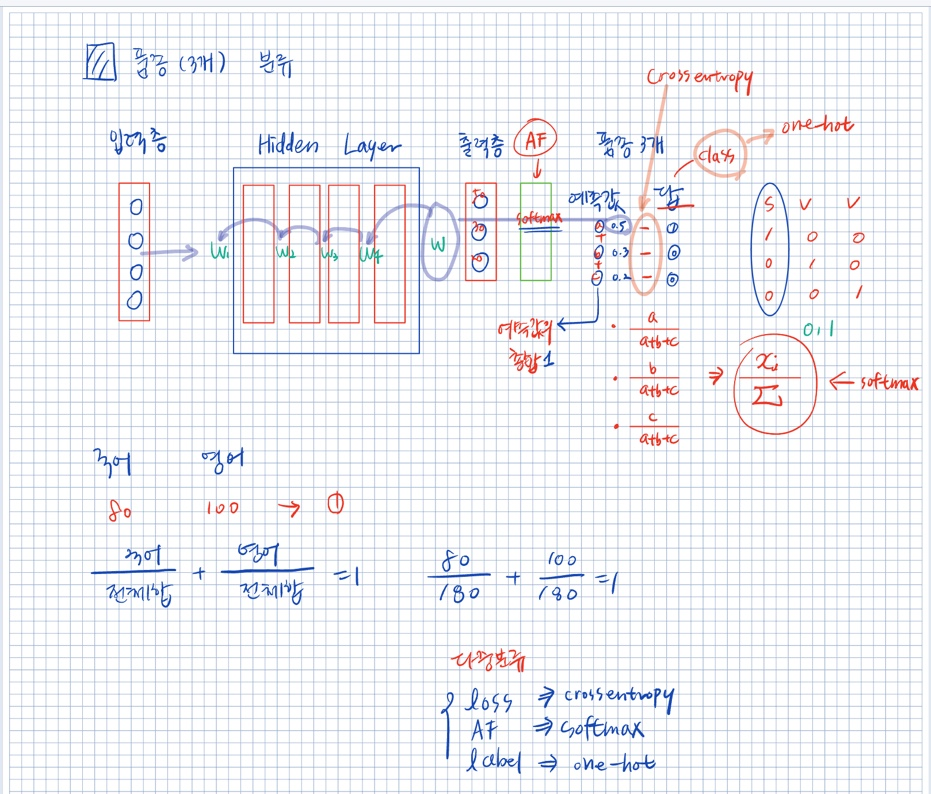 품종 (3개) 분류
Cross entropy
입력층 Hidden Layer 출력층 AF 품종 3개 class one-hot
예측값 답
S V V
50 softmax a 0.5 - 1 1 0 0
+
W₁ W₂ W₃ W₄ W 30 b 0.3 - 0 0 1 0
+
20 c 0.2 - 0 0 0 1
예측값의
총합 1
0, 1
· a / a+b+c
· b / a+b+c ⇒ xᵢ / Σ ← softmax
· c / a+b+c
국어 영어
80 100 → 1
국어 / 전체합 + 영어 / 전체합 = 1
80 / 180 + 100 / 180 = 1
다중분류
loss ⇒ crossentropy
AF ⇒ softmax
label ⇒ one-hot